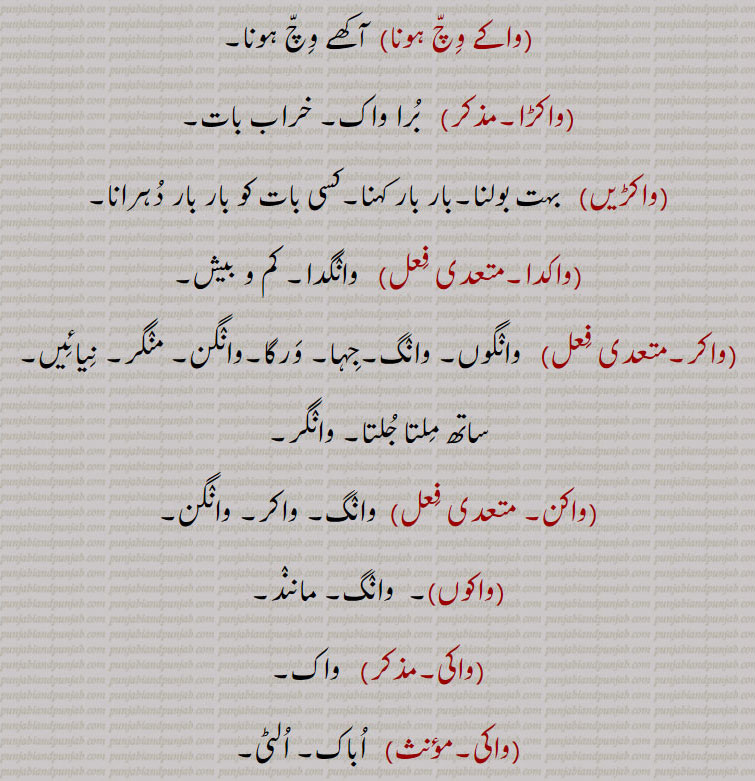 (واکے وِچّ ہونا) آکھے وِچّ ہونا۔
(واکڑا۔مذکر) بُرا واک۔ خراب بات۔
(واکڑیں) بہت بولنا۔بار بار کہنا۔کسی بات کو بار بار دُہرانا۔
(واکدا۔متعدی فِعل) وانٛگدا۔ کم و بیش۔
(واکر۔متعدی فِعل) وانٛگوں۔ وانٛگ۔جِہا۔ وَرگا۔وانٛگن۔ منٛگر۔ نِیائِیں۔
ساتھ مِلتا جُلتا۔ وانٛگر۔
(واکن۔ متعدی فِعل) وانٛگ۔ واکر۔ وانٛگن۔
(واکوں)۔ وانٛگ۔ ماننٛد۔
(واکی۔مذکر) واک۔
(واکی۔مؤنث) اُباک۔ اُلٹی۔